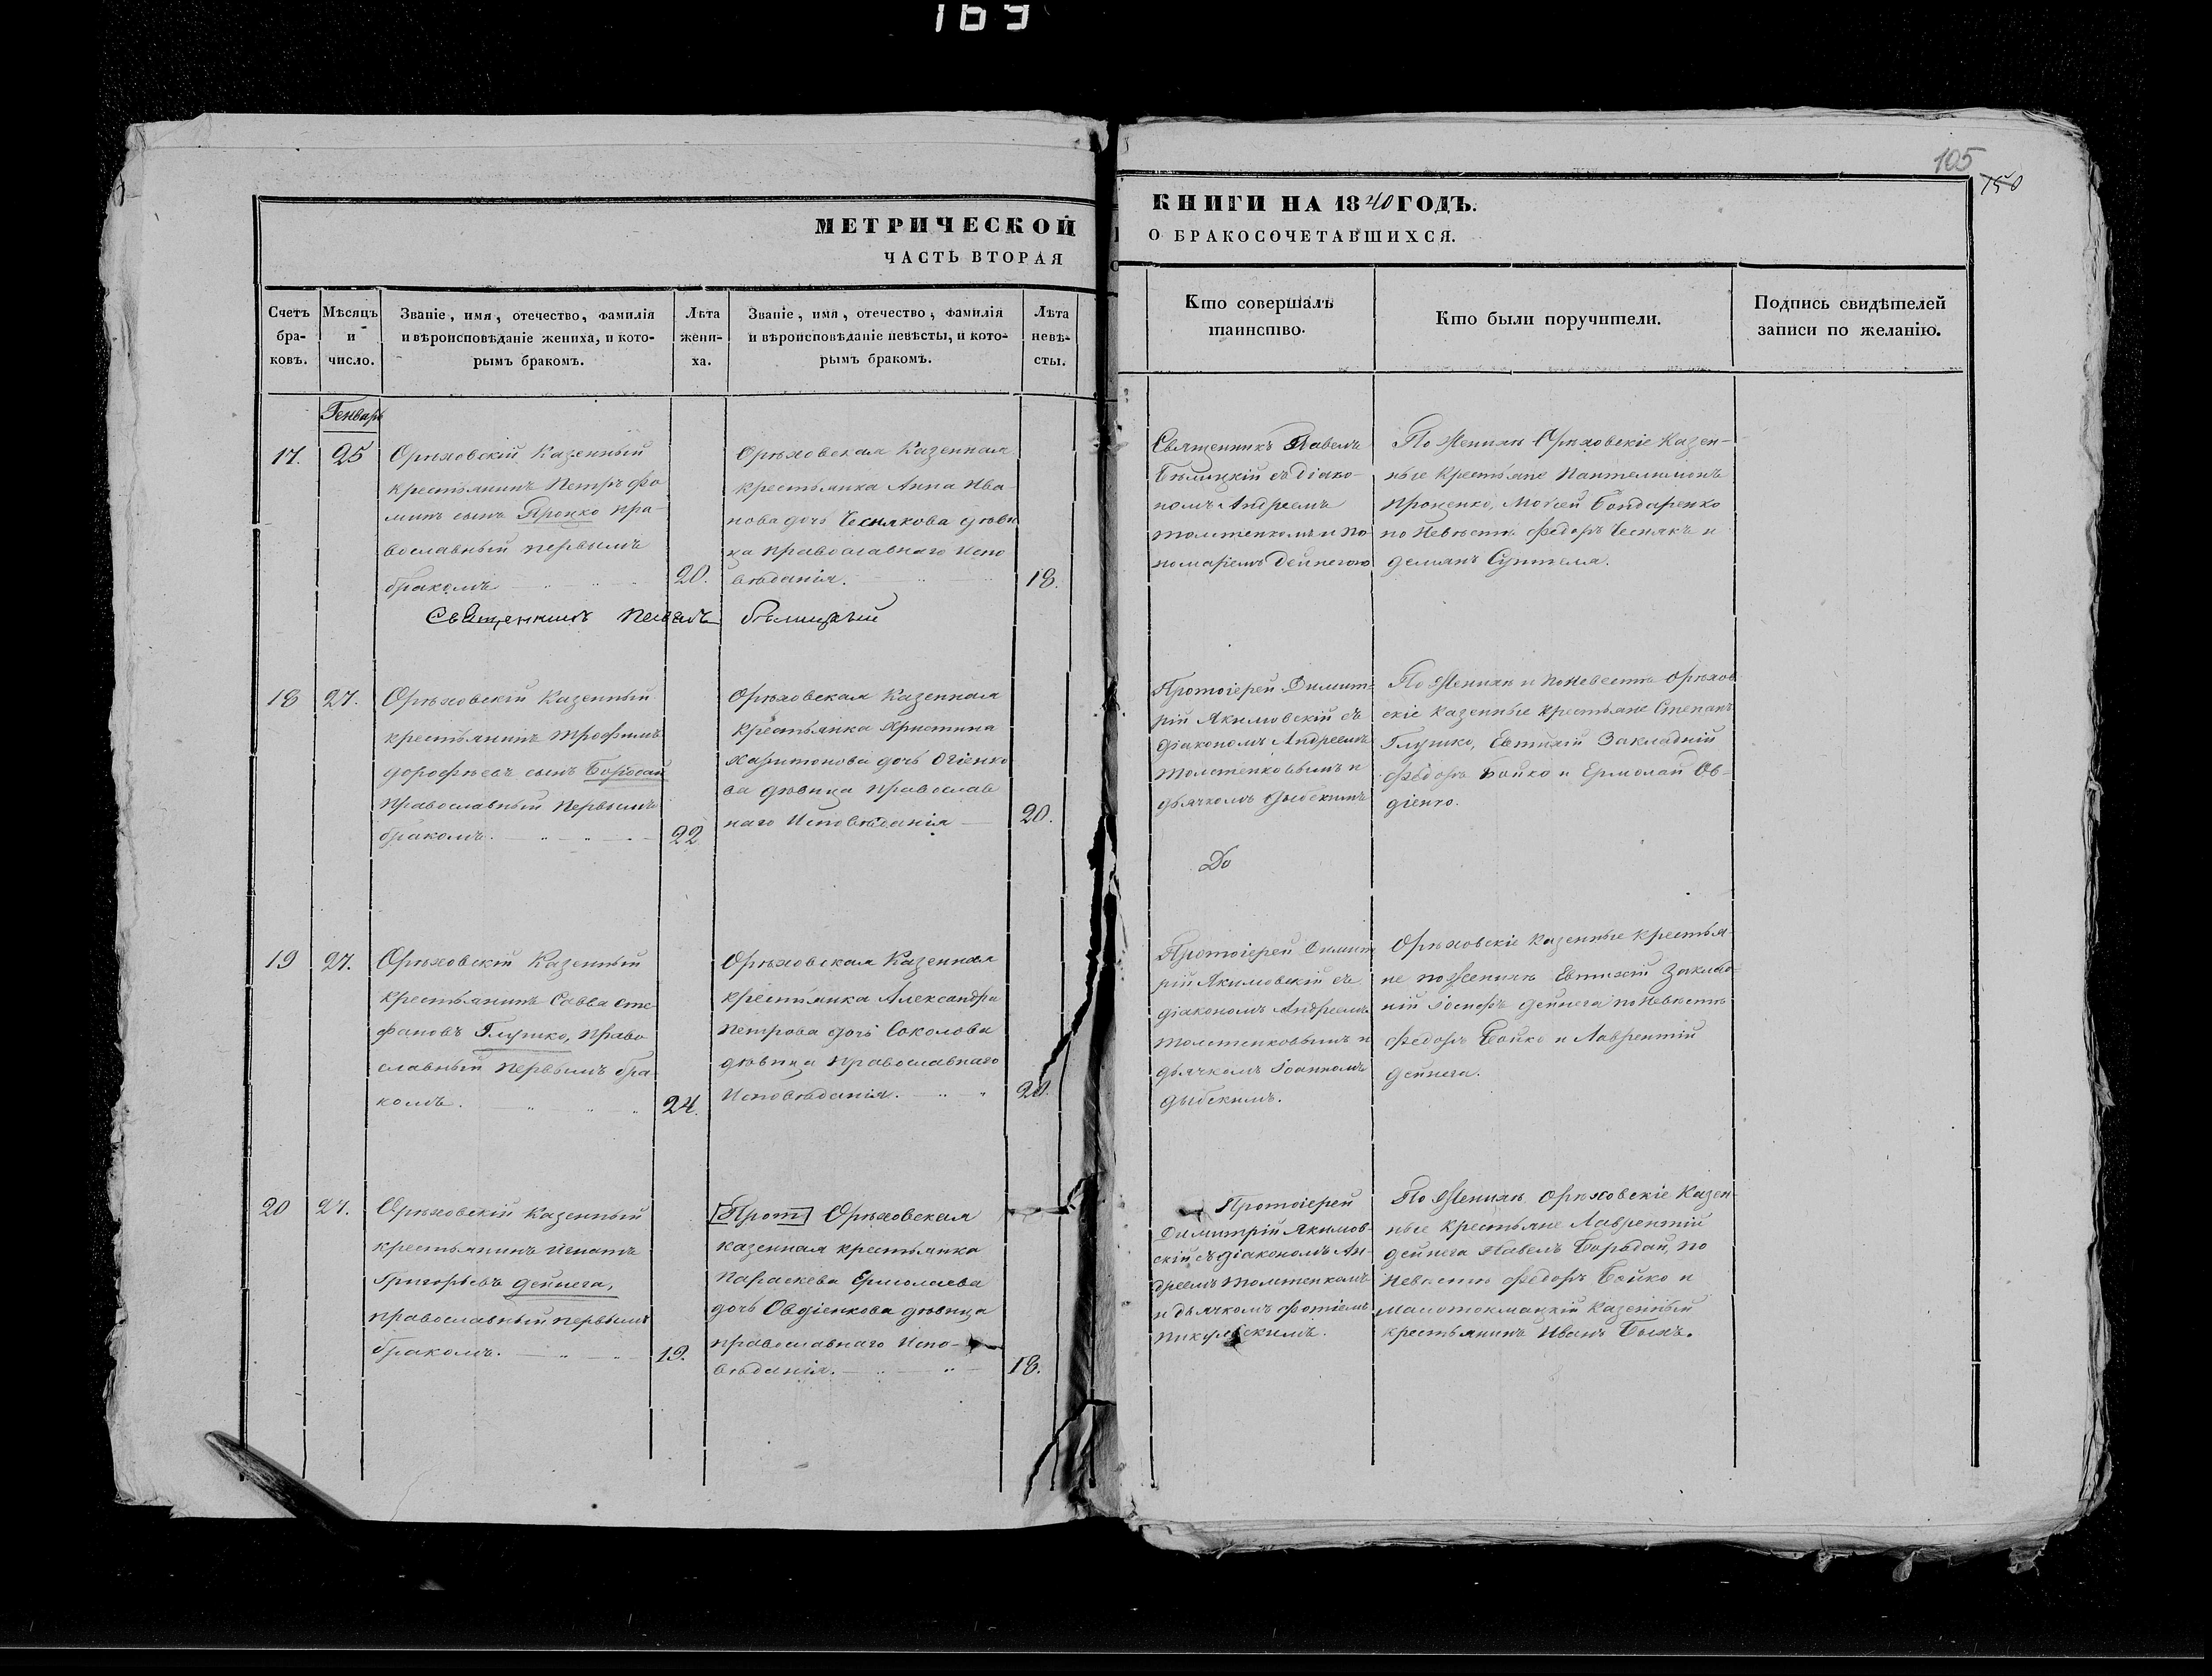 169
105
150
МЕТРИЧЕСКОЙ
ЧАСТЬ ВТОРАЯ
КНИГИ НА 1840 ГОДЪ.
О БРАКОСОЧЕТАВШИХСЯ.
Счетъ бра-ковъ.
Мѣсяцъ и число.
Званіе, имя, отечество, фамилія
и вѣроисповѣданіе жениха, и кото-
рымъ бракомъ.
Лѣта жени-ха.
Званіе, имя, отечество, фамилія
и вѣроисповѣданіе невѣсты, и кото-
рымъ бракомъ.
Лѣта невѣ-сты.
Кто совершалъ
таинство.
Кто были поручители.
Подпись свидѣтелей
записи по желанію.
Генварь
17.
25
Орѣховскій Казенный
крестьянинъ Петръ Фо
минъ сынъ Процко пра-
вославный первымъ
бракомъ
20.
Орѣховская Казенная
крестьянка Анна Ива
нова дочь Чеснякова дѣви
ца православнаго испо
вѣданія.
18.
Священникъ Павелъ
Бѣлицкій съ діако-
номъ Андреемъ
толстенкомъ и по
номаремъ Дейнегою
По Женихѣ Орѣховскіе Казен-
ные Крестьяне Пантелимонъ
Проценко, Моѵсей Бондаренко
по Невѣстѣ Федоръ Чеснякъ и
демянъ
Священникъ Павелъ Бѣлицкий
18
27.
Орѣховскій Казенный
крестьянинъ трофимъ
дорофѣевъ сынъ Бородай
Православный Первымъ
бракомъ.
22
Орѣховская Казенная
крестьянка Христина
Харитонова дочь Огіенко
ва дѣвица православ
наго Исповѣданія
20.
Протоіерей Димит-
рій Якимовскій съ
діакономъ Андреемъ
толстенковымъ и
дьячкомъ дыбскимъ
До
По Женихѣ и по Невестѣ Орѣхов
скіе казенные крестьяне Степанъ
Глушко, Евтихій Закладній
Федоръ Бойко и Ермолай Ов-
діенко.
19
27.
Орѣховскій Казенный
крестьянинъ Савва Сте
фановъ Глушко, Право
славный первымъ бра
комъ.
24.
Орѣховская Казенная
крестьянка Александра
Петрова дочь Соколова
дѣвица православнаго
Исповѣданія.
20.
Протоіерей Димит
рій Якимовскій съ
діакономъ Андреемъ
толстенковымъ и
дьячкомъ Іоанномъ
дыбскимъ.
Орѣховскіе Казенные крестья
не по Женихѣ Евтихій Заклад-
ній Іосифъ дейнега по Невѣстѣ
Федоръ Бойко и Лаврентій
дейнега.
20
27.
Орѣховскій Казенный
крестьянинъ Игнатъ
Григорьевъ дейнега,
православный первымъ
бракомъ.
19.
Прот Орѣховская
казенная крестьянка
Параскева Ермолаева
дочь Овдіенкова дѣвица
православнаго Испо-
вѣданія.
18.
Протоіерей
Димитрій Якимов-
скій съ діакономъ Ан-
дреемъ толстенкомъ
и дьячкомъ Фотіемъ
По Женихѣ Орѣховскіе Казен-
ные крестьяне Лаврентій
дейнега Павелъ Бородай, по
Невѣстѣ Федоръ Бойко и
малотокмацкій Казенный
крестьянинъ Иванъ